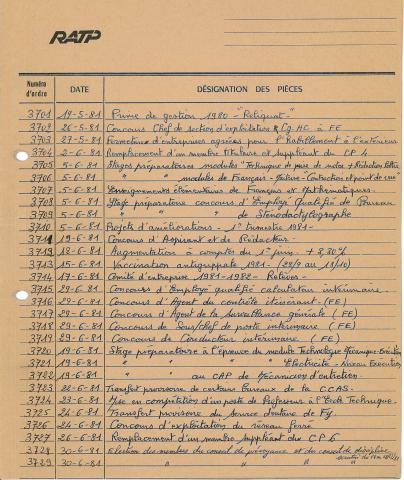 RATP
Numéro d'ordre DATE DÉSIGNATION DES PIÈCES
3701 19-5-81 Prime de gestion 1980 - "Reliquat"
3702 26-5-81 Concours Chef de section d'exploitation & Cg. HC à FE
3703 27-5-81 Fermeture d'entreprises agréées pour l'habillement à l'extérieur
3704 2-6-81 Remplacement d'un membre titulaire et suppléant du CP 4
3705 5-6-81 Stages préparatoires modules "Technique de prise de notes + Rédaction
3706 5-6-81 " " modules de Français - Lecture - Contraction et point de vue"
3707 5-6-81 Enseignements élémentaires de Français et Mathématiques.
3708 5-6-81 Stage préparatoire concours d'Employé Qualifié de Bureau
3709 5-6-81 " " " de Sténodactylographe
3710 5-6-81 Projets d'améliorations - 1er trimestre 1981 -
3711 19-6-81 Concours d'Aspirant et de Rédacteur.
3712 12-6-81 Augmentation à compter du 1er juin + 3,30%
3713 15-6-81 Vaccination antigrippale 1981 - (28/9 au 18/10)
3714 17-6-81 Comité d'entreprise 1981-1982 - Relèves -
3715 29-6-81 Concours d'Employé qualifié calculateur intérimaire.
3716 29-6-81 Concours d'Agent du contrôle itinérant. (FE)
3717 29-6-81 Concours d'Agent de la surveillance générale (FE)
3718 29-6-81 Concours de Sous/chef de poste intérimaire (FE)
3719 29-6-81 Concours de Conducteur intérimaire (FE)
3720 19-6-81 Stage préparatoire à l'épreuve du module Technologie Mécanique-Exécution
3721 19-6-81 " " " " Electricité - Niveau Exécution
3722 19-6-81 " " au CAP de Mécanicien d'entretien
3723 22-6-81 Transfert provisoire de certains bureaux de la CCAS.
3724 23-6-81 Mise en compétition d'un poste de Professeur à l'Ecole Technique.
3725 24-6-81 Transfert provisoire du service d'outane de Fy
3726 26-6-81 Concours d'exploitation du réseau ferré
3727 26-6-81 Remplacement d'un membre suppléant du CP 6
3728 30-6-81 Election des membres du conseil de prévoyance et du conseil de discipline
3729 30-6-81 " " " "